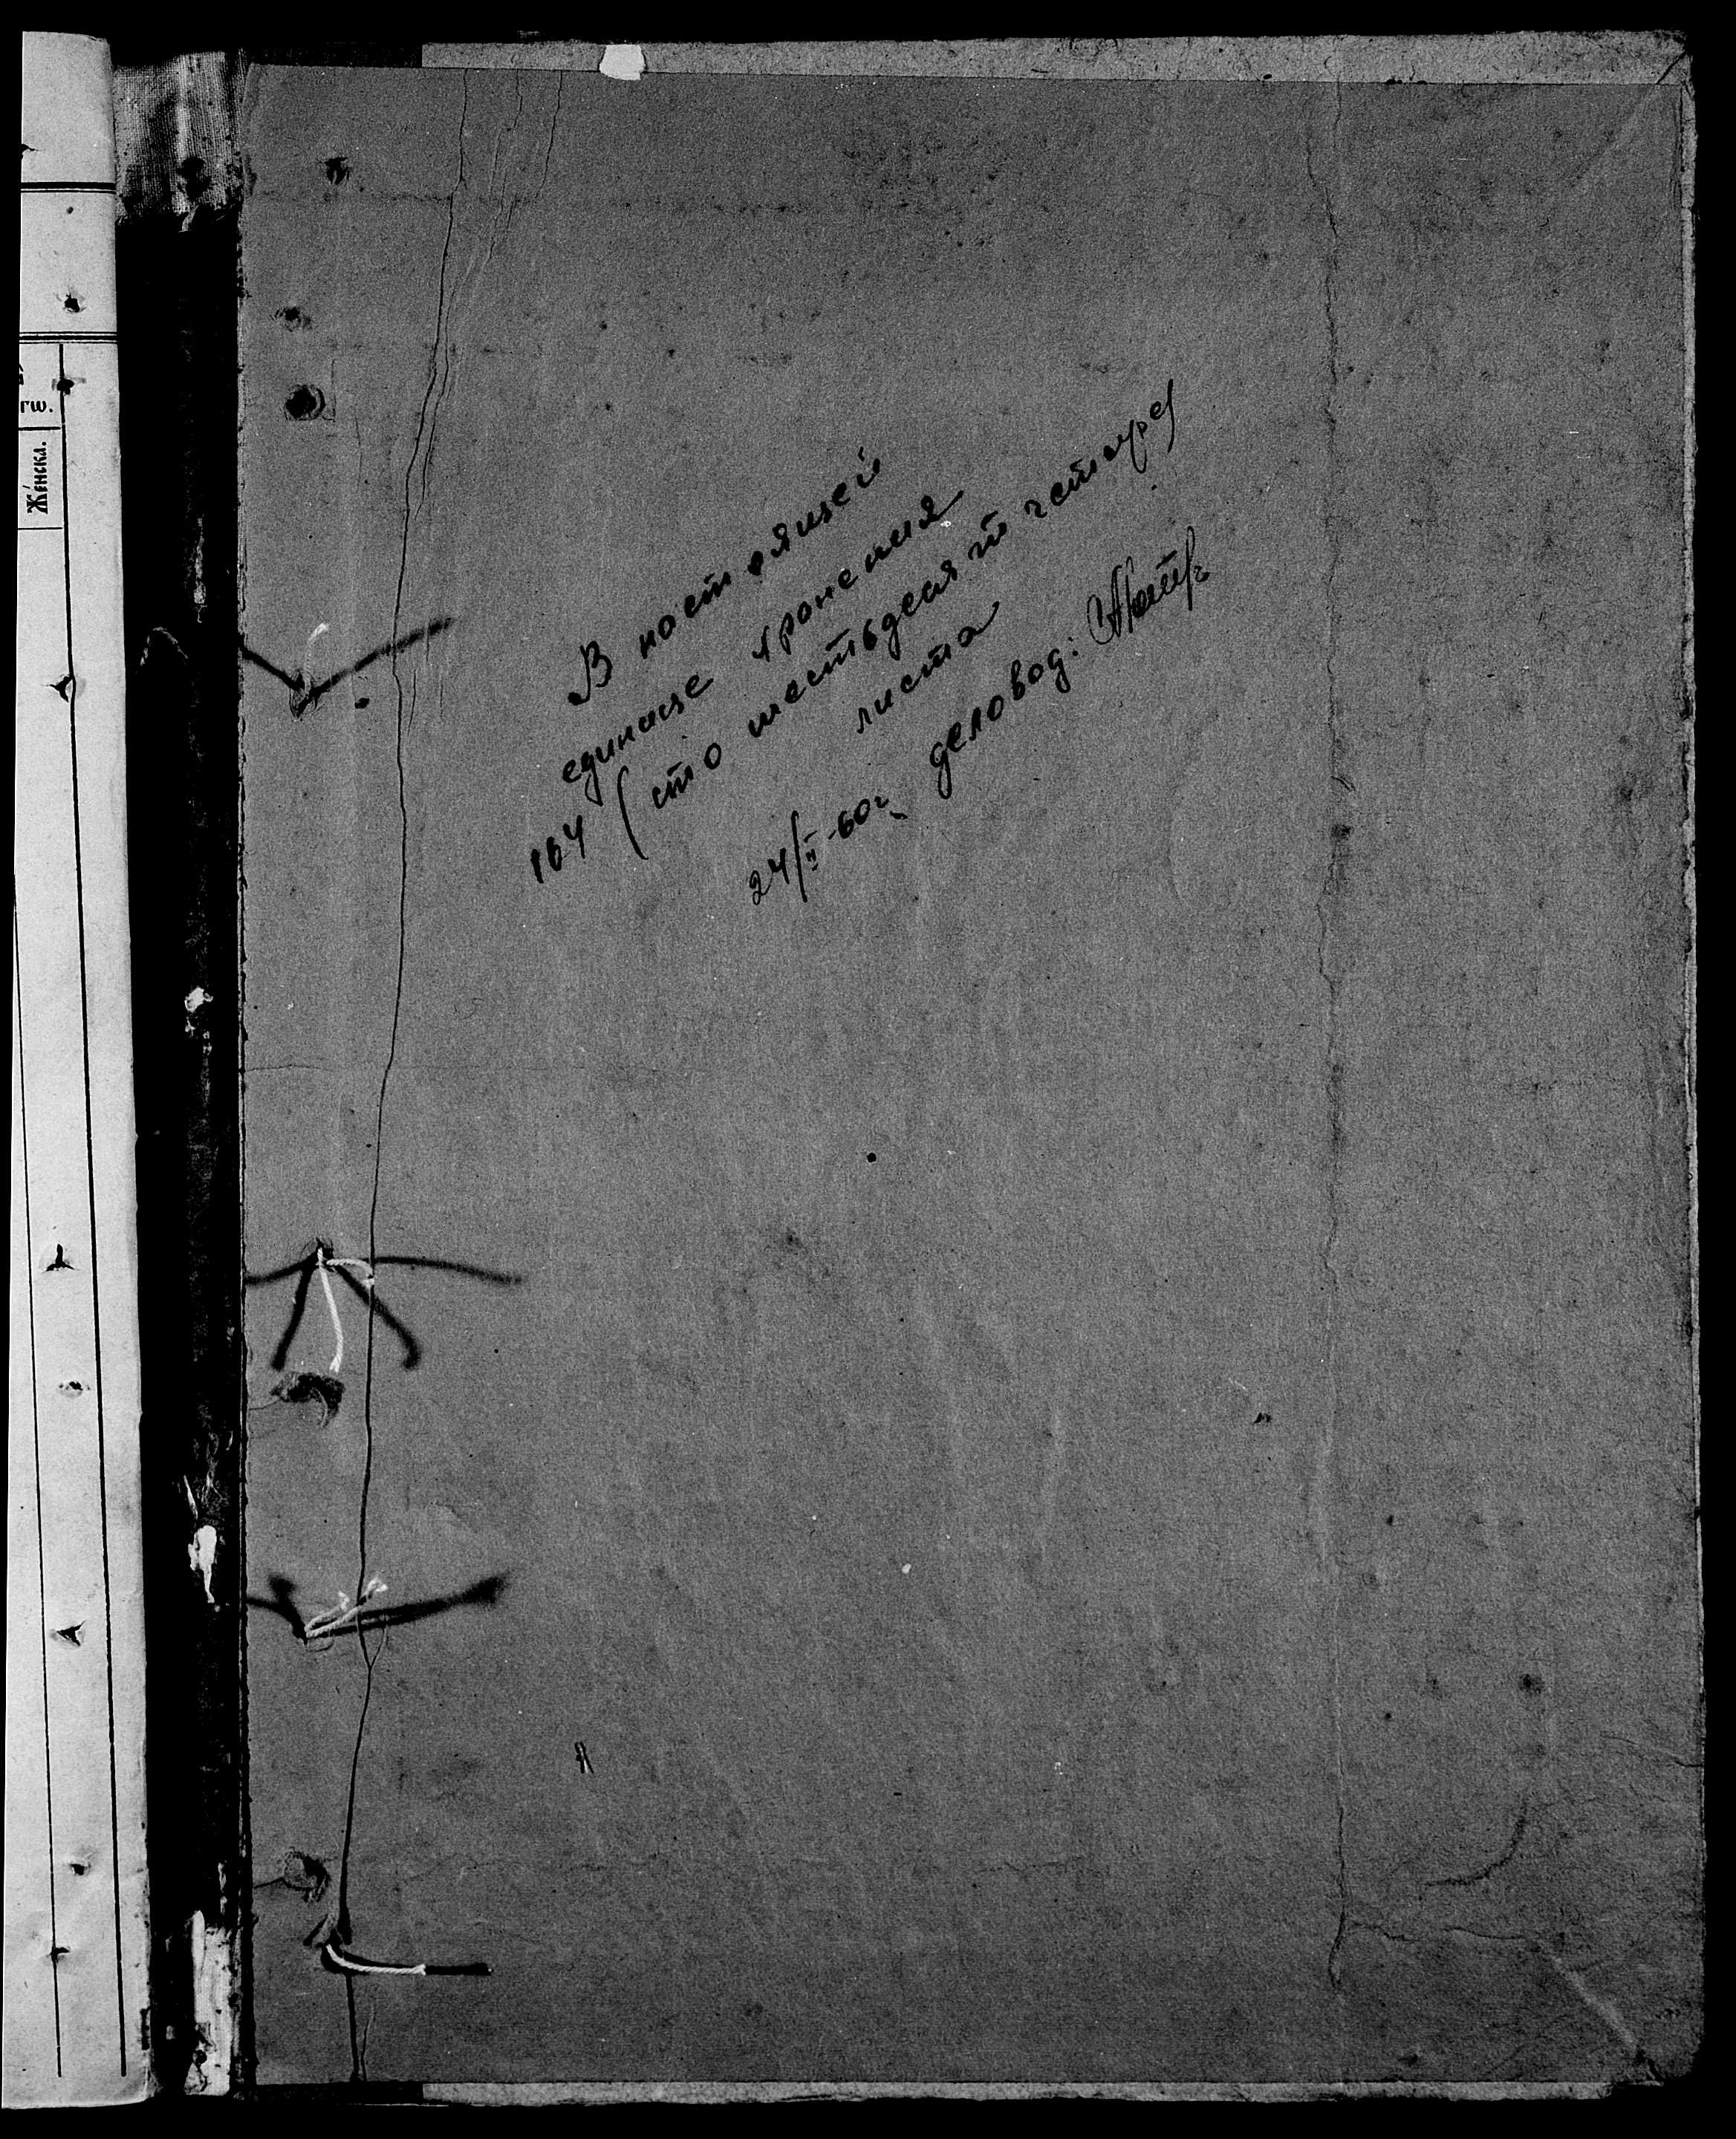 гш.
Женскл.
В настоящей
единице хранения
164 (сто шестьдесят четыре)
листа
24/II-60г. деловод: